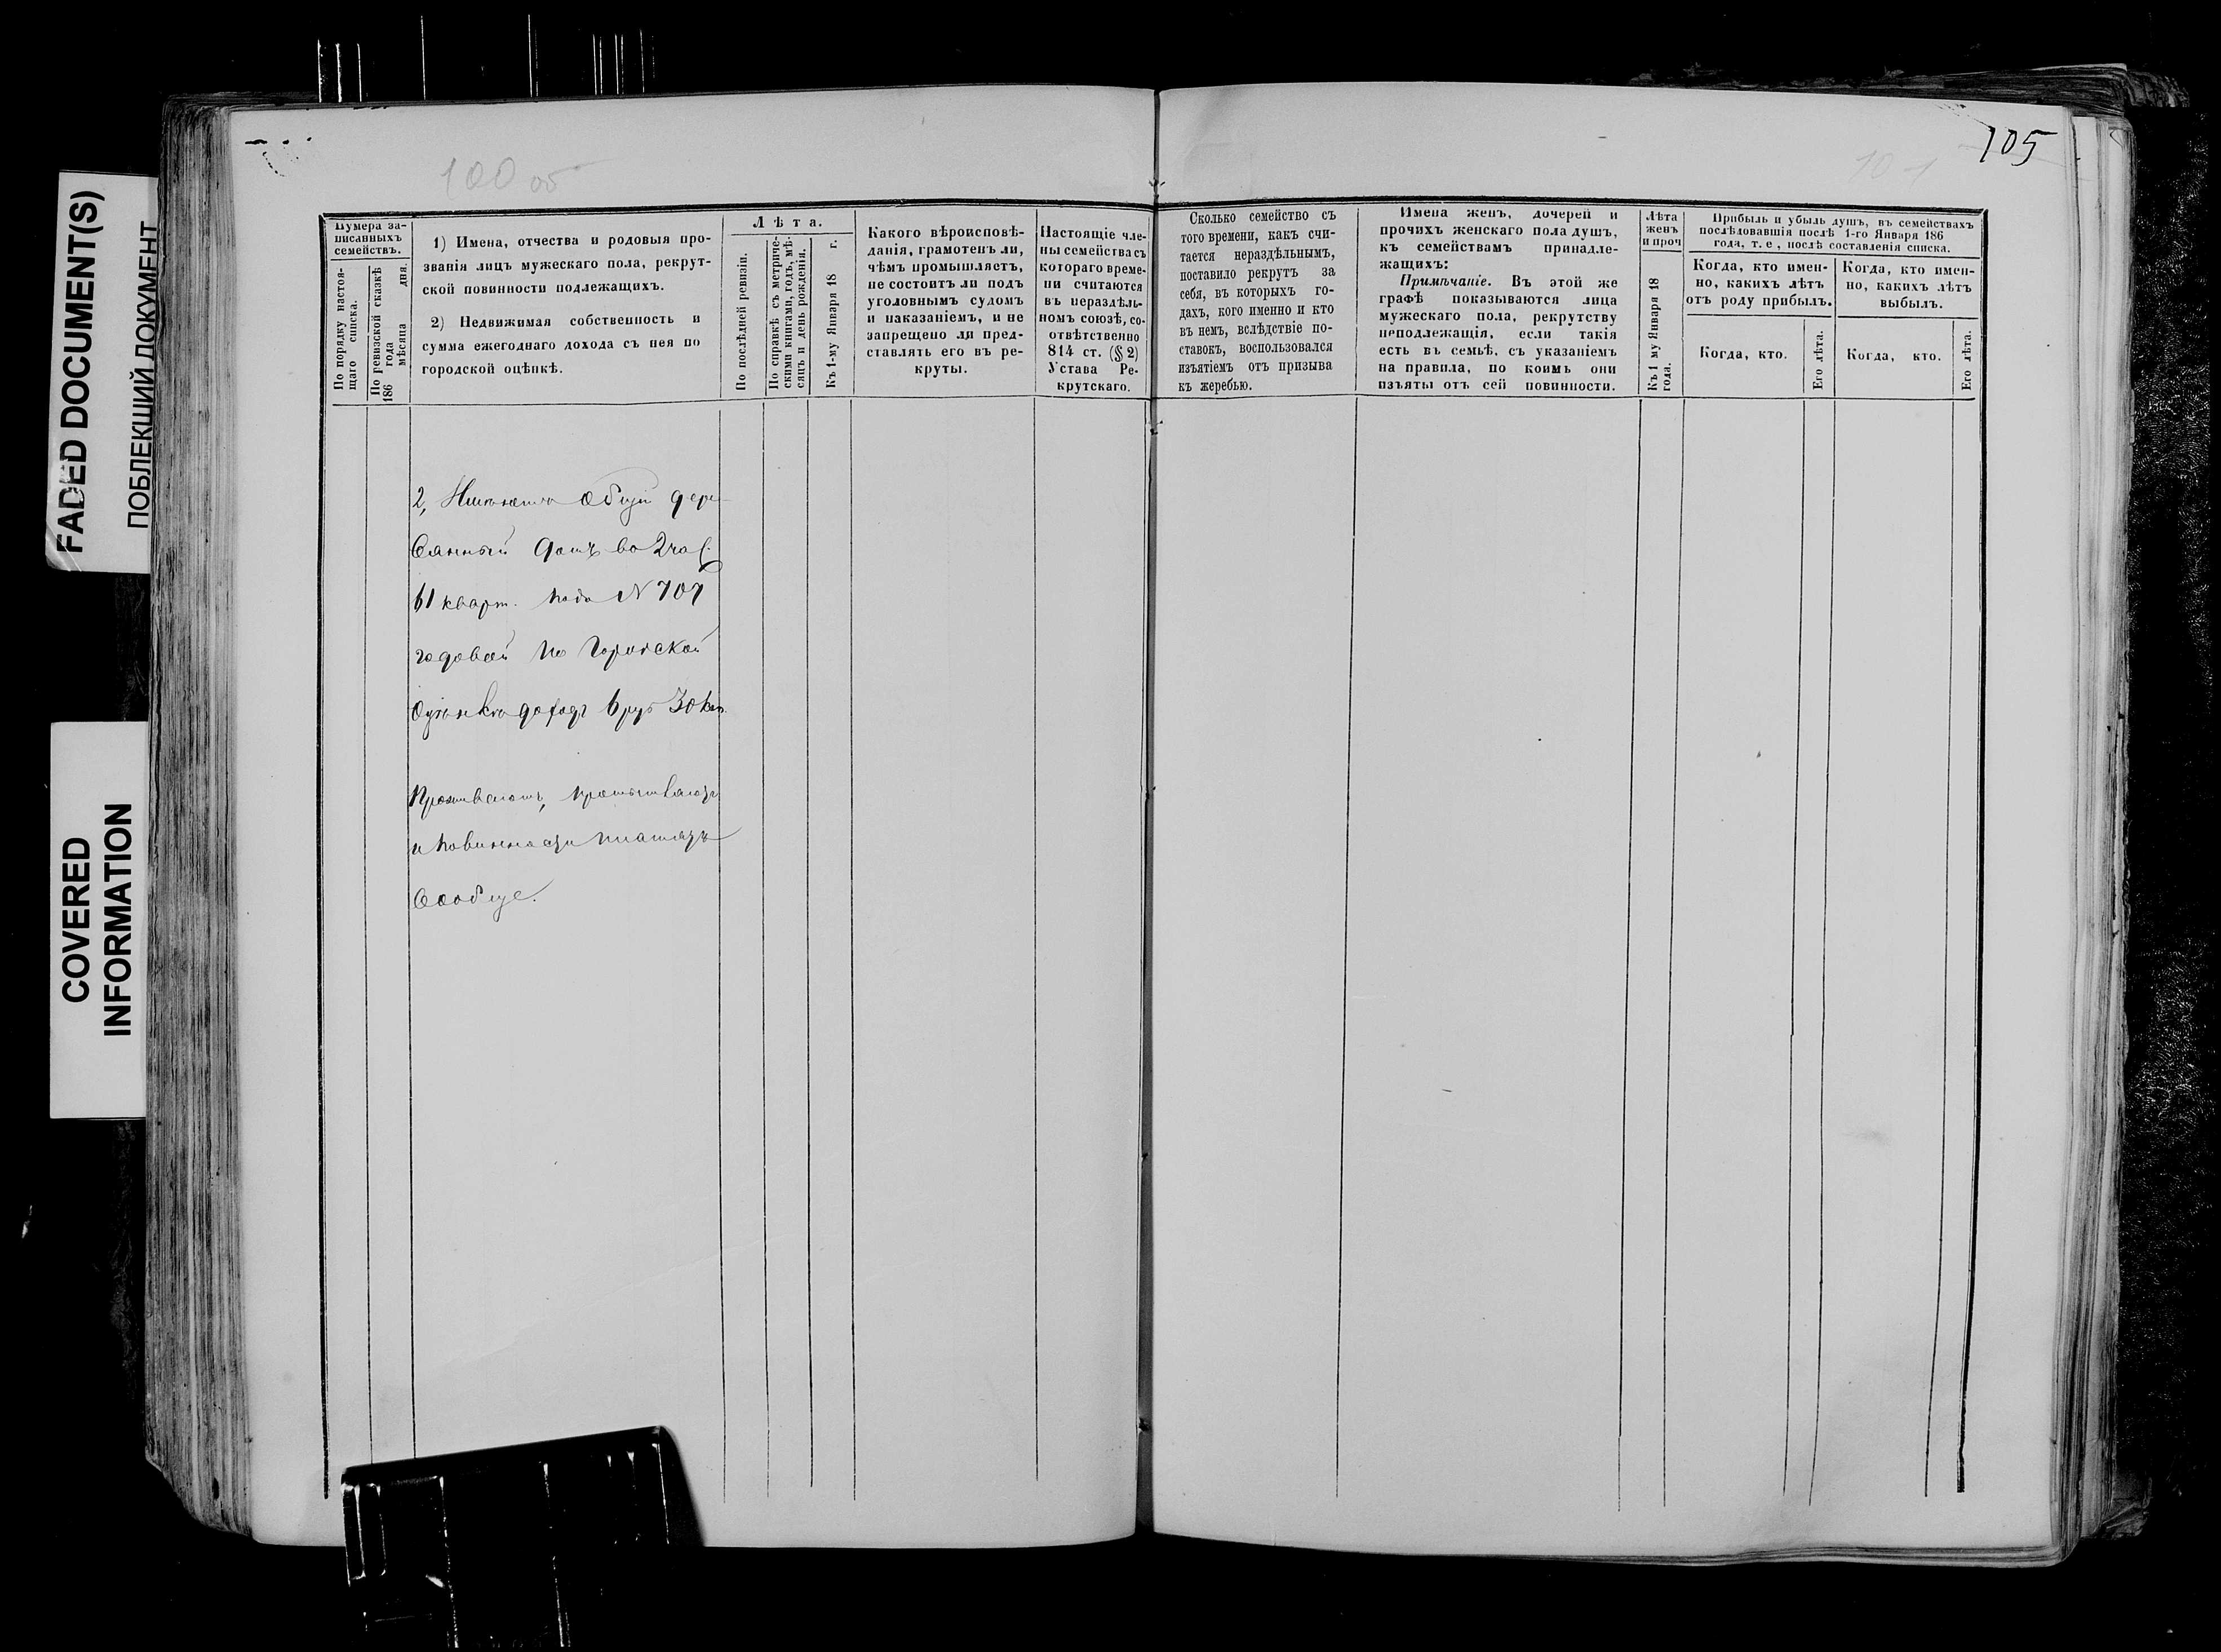 FADED DOCUMENT(S)
ПОБЛЕКШИЙ ДОКУМЕНТ
COVERED
INFORMATION
100 об
105
Нумера за-
писанныхъ
семействъ.
По порядку настоя-
щаго списка.
По ревизской сказкѣ
186 года мѣсяца дня.
1) Имена, отчества и родовыя про-
званія лицъ мужескаго пола, рекрут-
ской повинности подлежащихъ.
2) Недвижимая собственность и
сумма ежегоднаго дохода съ нея по
городской оцѣнкѣ.
Лѣта.
По послѣдней ревизіи.
По справкѣ съ метриче-
скими книгами, годъ, мѣ-
сяцъ и день рожденія.
Къ 1-му Января 18 г.
Какого вѣроисповѣ-
данія, грамотенъ ли,
чѣмъ промышляетъ,
не состоитъ ли подъ
уголовнымъ судомъ
и наказаніемъ, и не
запрещено ли пред-
ставлять его въ ре-
круты.
Настоящіе чле-
ны семейства съ
котораго време-
ни считаются
въ нераздѣль-
номъ союзѣ, со-
отвѣтственно
814 ст. (§ 2)
Устава Ре-
крутскаго.
Сколько семейство съ
того времени, какъ счи-
тается нераздѣльнымъ,
поставило рекрутъ за
себя, въ которыхъ го-
дахъ, кого именно и кто
въ немъ, вслѣдствіе по-
ставокъ, воспользовался
изъятіемъ отъ призыва
къ жеребью.
Имена женъ, дочерей и
прочихъ женскаго пола душъ,
къ семействамъ принадле-
жащихъ:
Примѣчаніе. Въ этой же
графѣ показываются лица
мужескаго пола, рекрутству
неподлежащія, если такія
есть въ семьѣ, съ указаніемъ
на правила, по коимъ они
изъяты отъ сей повинности.
Лѣта
женъ
и проч
Къ 1 му Января 18
года.
Прибыль и убыль душъ, въ семействахъ
послѣдовавшія послѣ 1-го Января 186
года, т. е, послѣ составленія списка.
Когда, кто имен-
но, какихъ лѣтъ
отъ роду прибылъ.
Когда, кто имен-
но, какихъ лѣтъ
выбылъ.
Когда, кто.
Его лѣта.
Когда, кто.
Его лѣта.
2, общій дере
вянный домъ во 2 час.
61 кварт. подъ N 707
годовой по городской
оцѣнкѣ доходъ 6 руб 30 коп.
Проживаютъ, промышляютъ
и повинности платятъ
сообще.